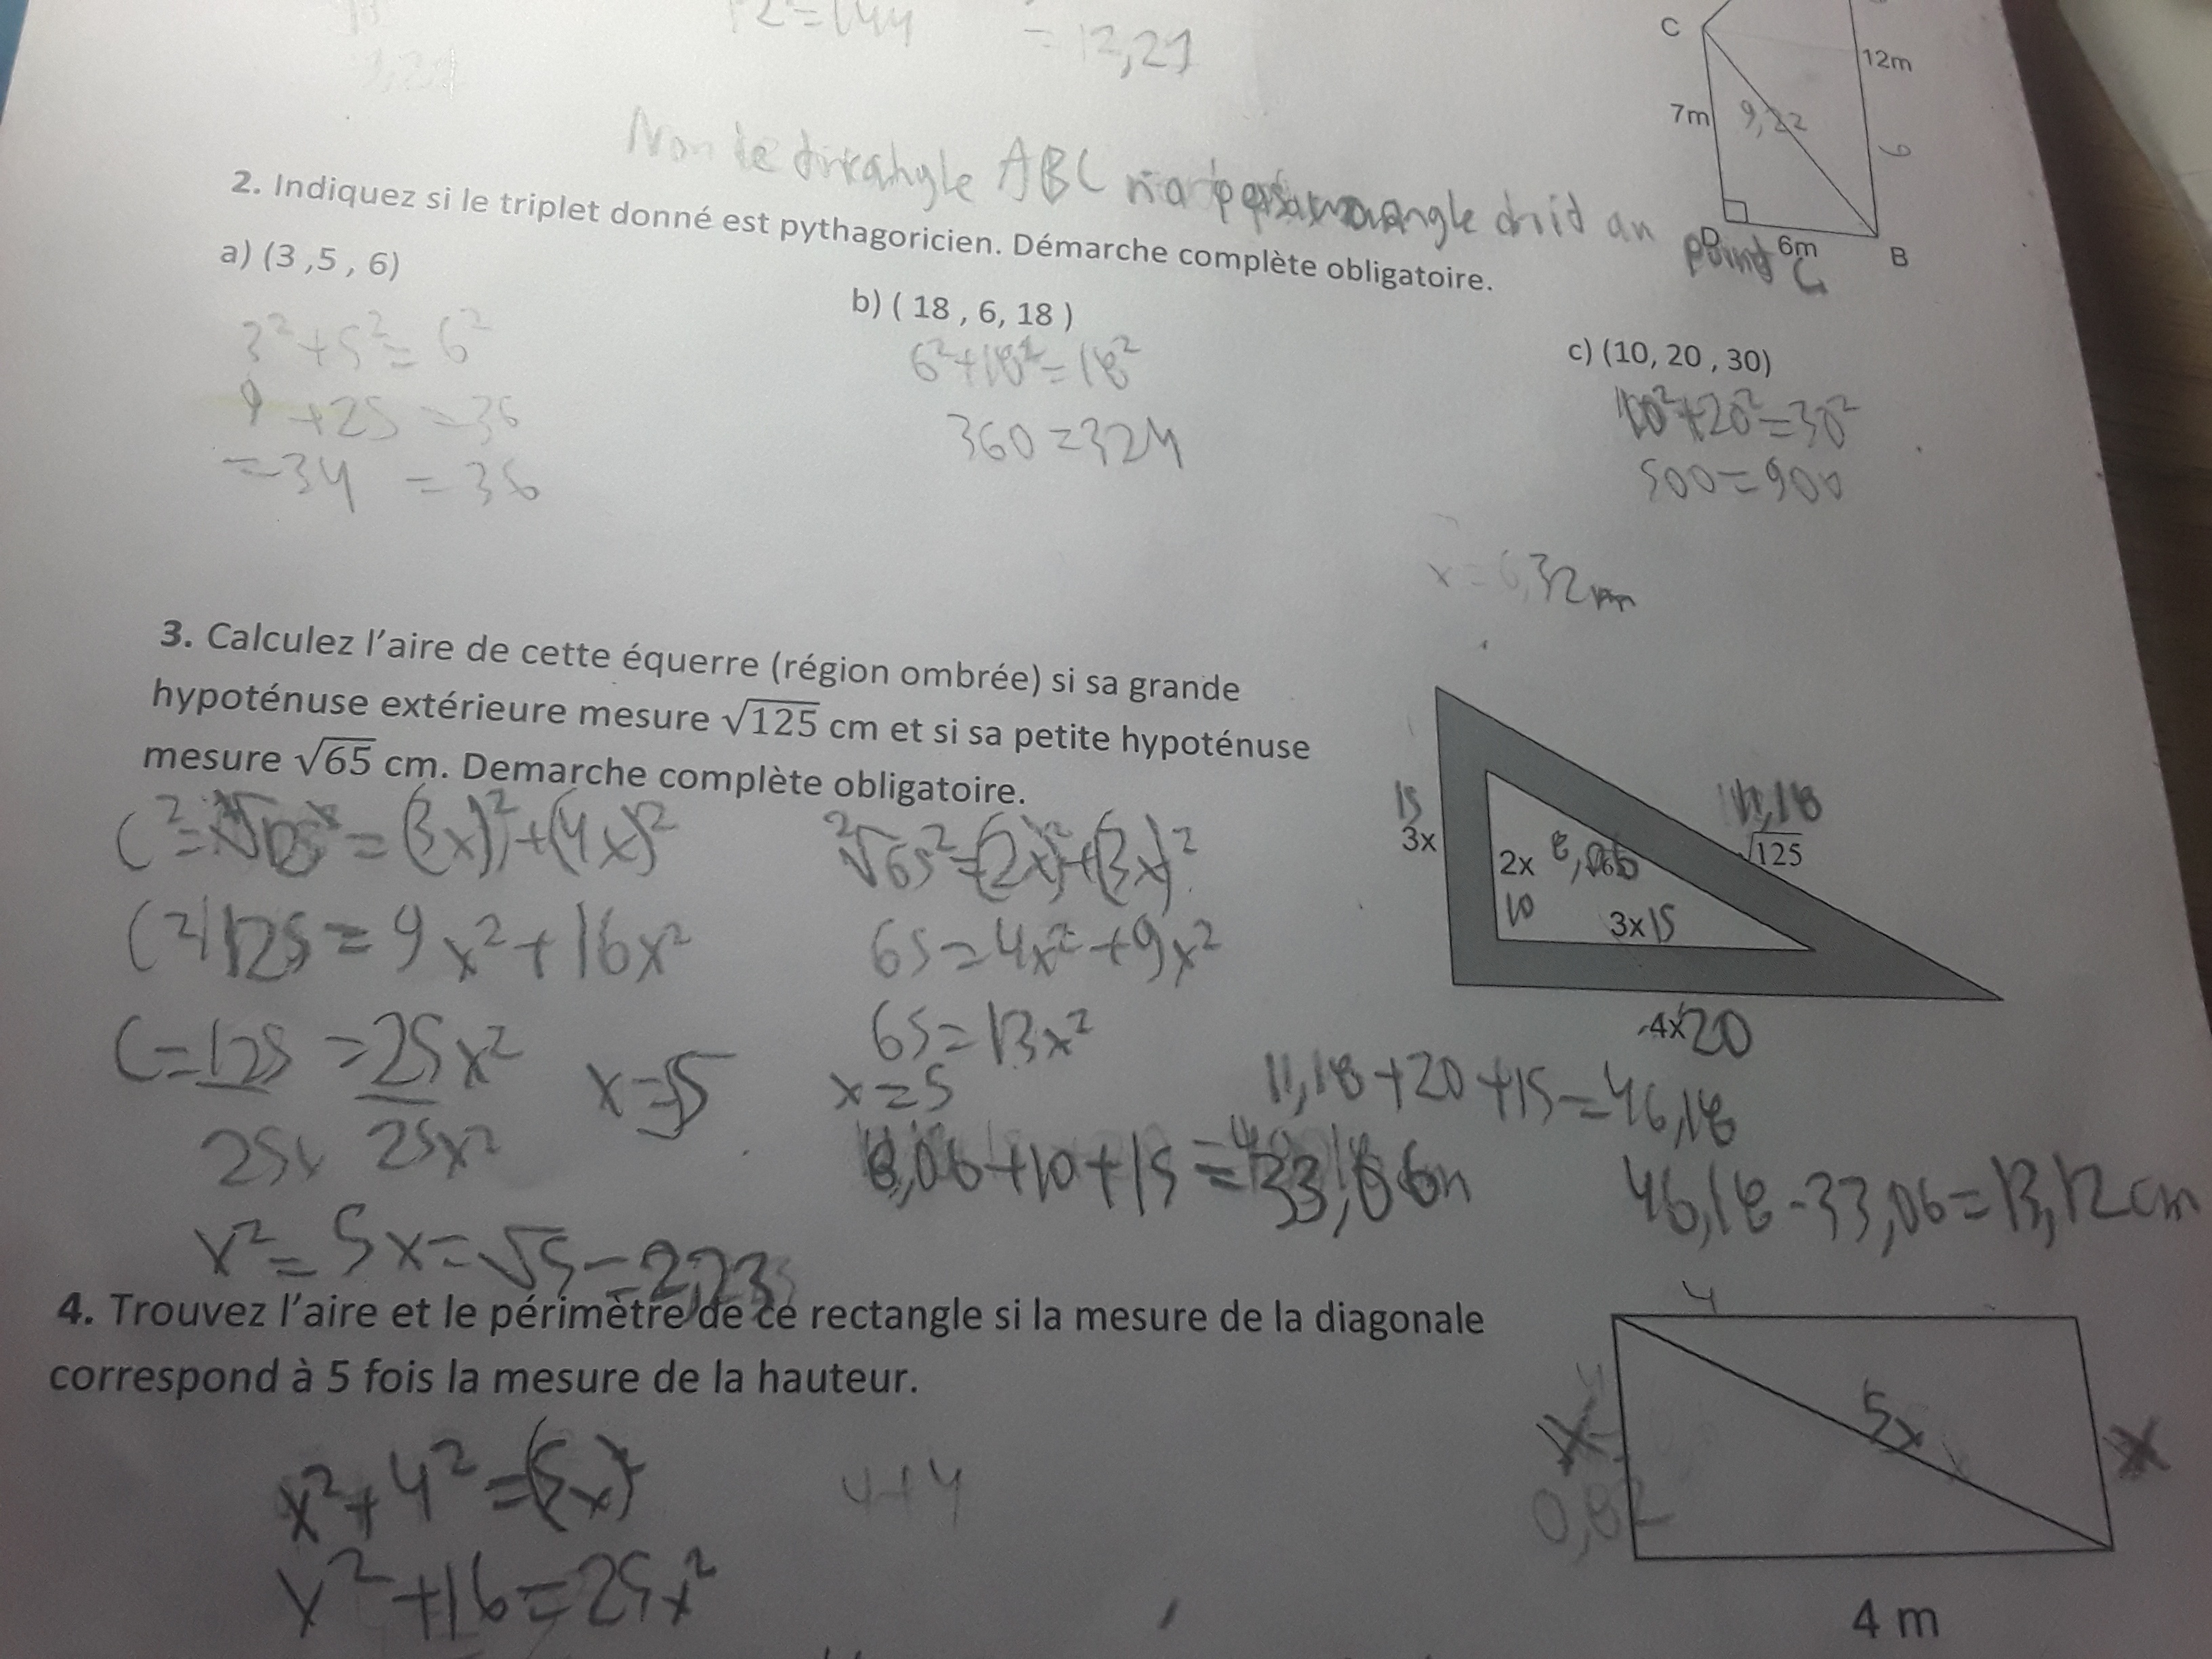 12²=144
=12,21
C
12m
7m
9,22
6
D
6m
B
Non le triangle ABC n'a pas angle droit au
point C
2. Indiquez si le triplet donné est pythagoricien. Démarche complète obligatoire.
a) (3 ,5 , 6)
3²+5²=6²
9+25=36
=34 =36
b) ( 18 , 6, 18 )
6²+18²=18²
360=324
c) (10, 20 , 30)
10²+20²=30²
500=900
x=6,32m
3. Calculez l'aire de cette équerre (région ombrée) si sa grande
hypoténuse extérieure mesure √125 cm et si sa petite hypoténuse
mesure √65 cm. Demarche complète obligatoire.
=(3x)²+(4x)²
125=9x²+16x²
C=125=25x²
25x 25x²
x=5
x²=5x=√5=2,23
²√65²=(2x)²+(3x)²
65=4x²+9x²
65=13x²
x=5
8,06+10+15=33,06
15
3x
2x
10
8,06
3x15
11,18
√125
4x20
11,18+20+15=46,18
46,18-33,06=13,12cm
4. Trouvez l'aire et le périmètre de ce rectangle si la mesure de la diagonale
correspond à 5 fois la mesure de la hauteur.
x²+4²=(5x)²
x²+16=25x²
4+4
4
x
0,82
5x
x
4 m